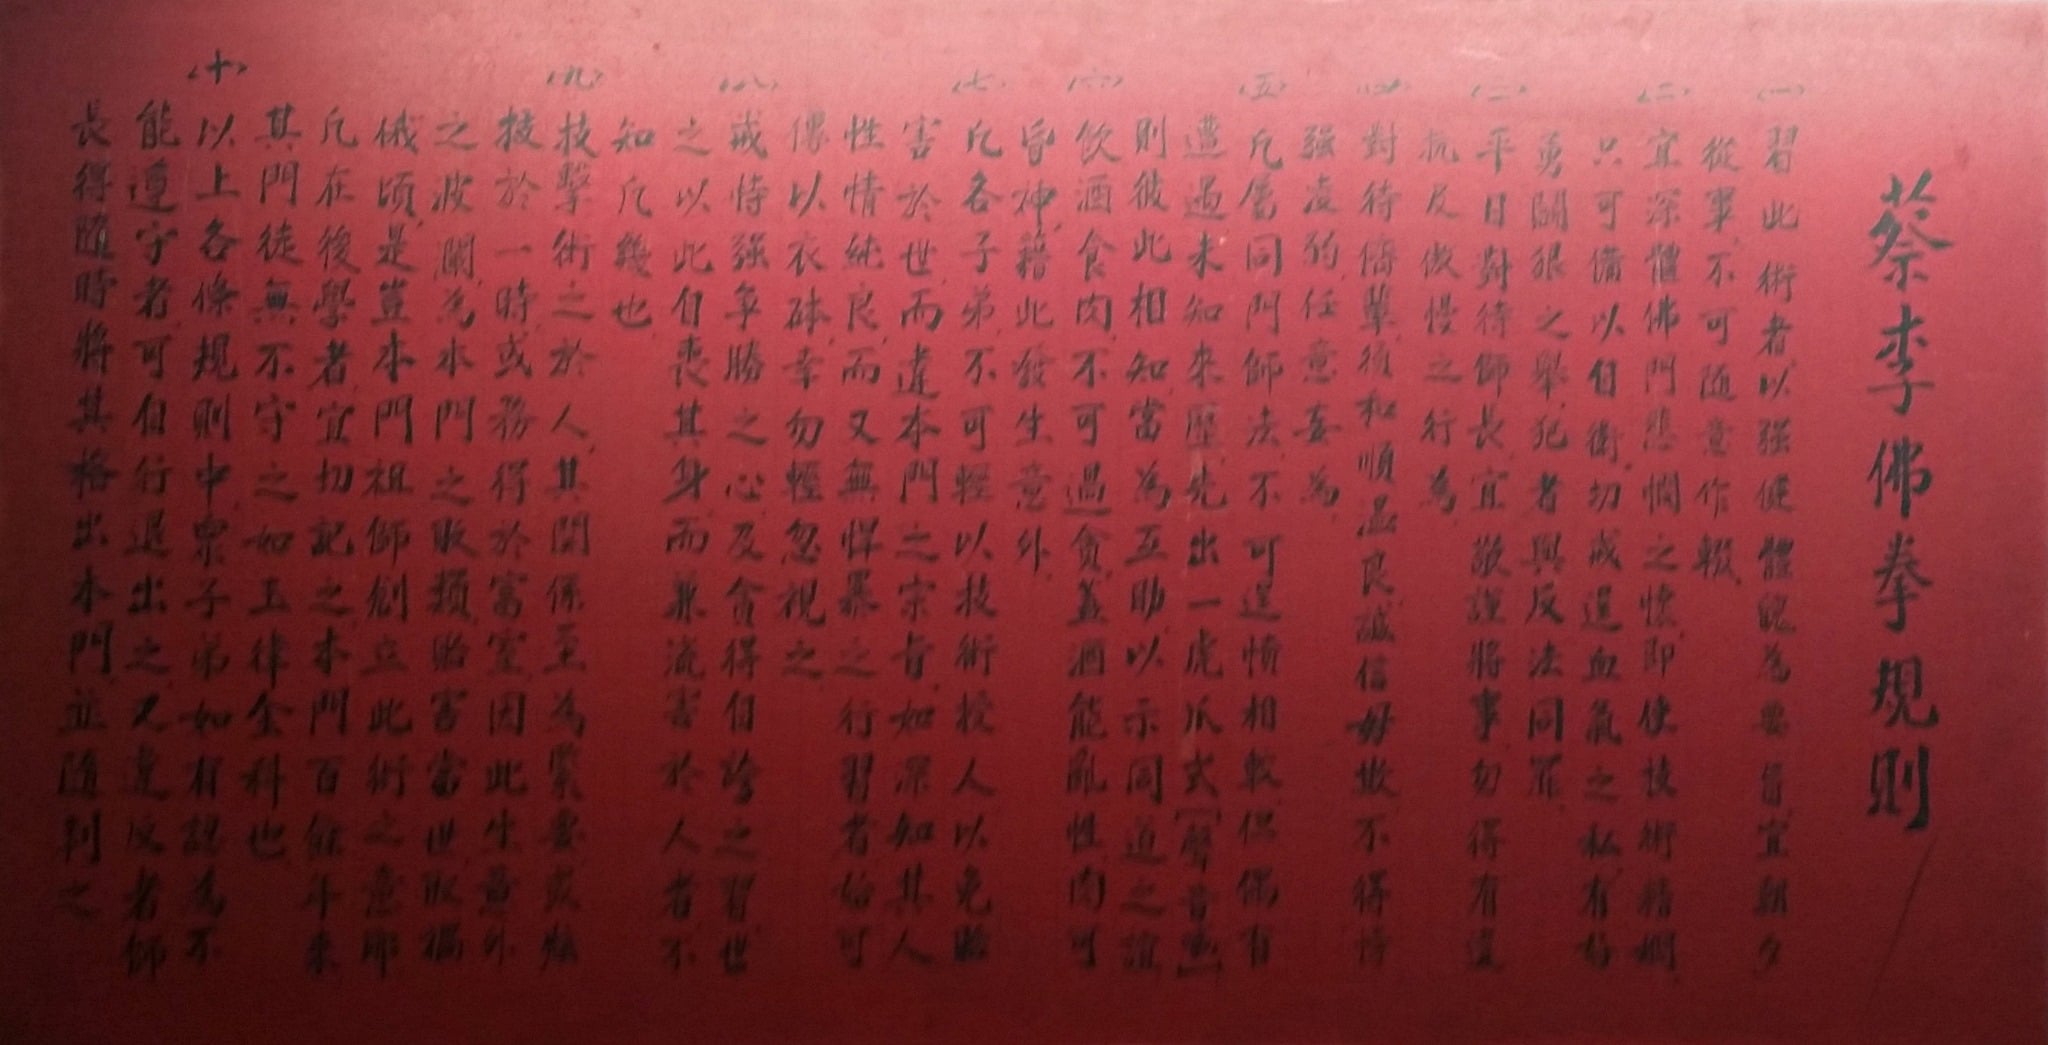 蔡李佛拳規則
(一)習此術者,以强健體魄為要旨,宜朝夕
從事,不可随意作輟。
(二)宜深體佛門悲憫之懷,即使技術精嫻,
只可備以自衛,切戒逞血氣之私,有好
勇鬭狠之舉,犯者與反法同罪。
(三)平日對待師長,宜敬謹將事,勿得有違
抗及傲慢之行為。
(四)對待儕輩,須和順温良,誠信毋欺,不得恃
强凌弱,任意妄為。
(五)凡屬同門師法,不可逞憤相較,但偶有
遭遇未知來歷,先出一虎爪式[聲音
則彼此相知,當為互助,以示同道之誼。
(六)飲酒食肉,不可過貪,蓋酒能亂性,肉可
昏神,藉此發生意外。
(七)凡各子弟,不可輕以技術授人,以免貽
害於世,而違本門之宗旨,如深知其人
性情純良,而又無悍暴之行,習者始可
傳以衣砵,幸勿輕忽視之。
(八)戒恃强争勝之心,及貪得自誇之習,世
之以此自喪其身,而兼流害於人者,不
知凡幾也。
(九)技擊術之於人,其関係至為緊要,或炫
技於一時,或務得於富室,因此生意外
之波瀾,為本門之敗類,貽害當世,取禍
俄頃,是豈本門祖師創立此術之意耶,
凡在後學者,宜切記之,本門百餘年來
其門徒無不守之如玉律金科也。
(十)以上各條規則中,衆子弟如有認為不
能遵守者,可自行退出之,又違反者,師
長得隨時將其格出本門,並隨到之